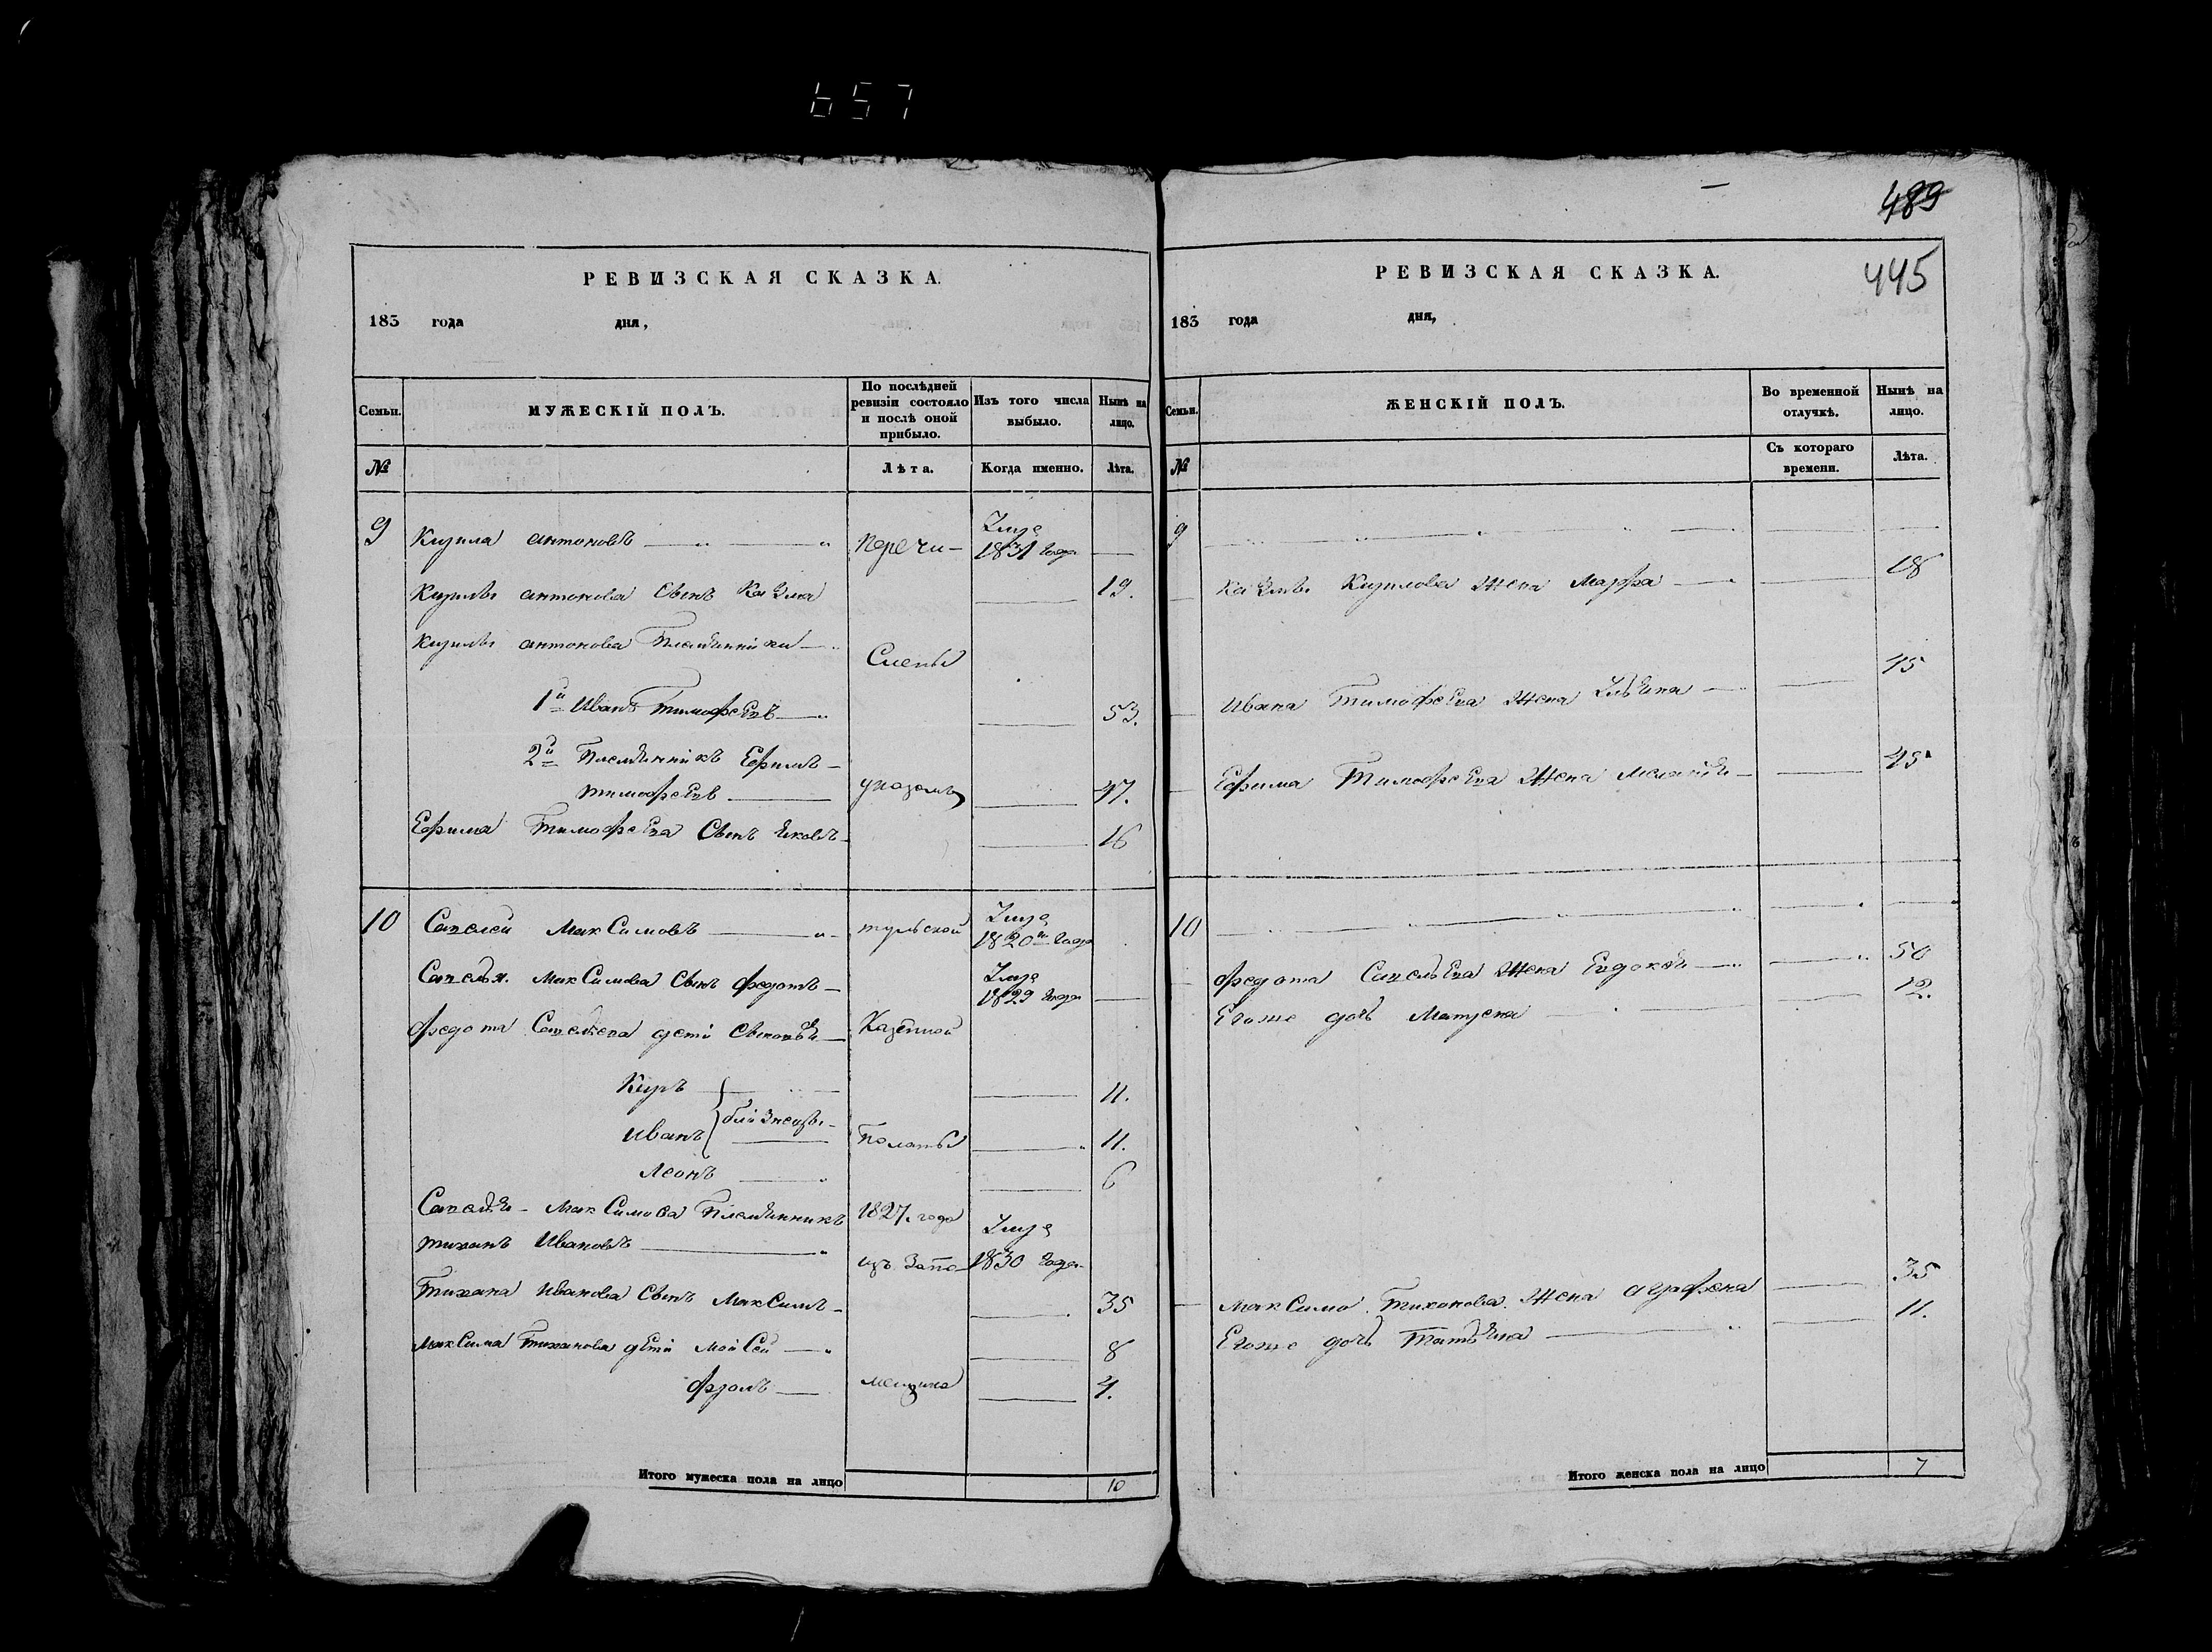 657
489
445
РЕВИЗСКАЯ СКАЗКА.
183 года дня,
Семьи. МУЖЕСКІЙ ПОЛЪ. По послѣдней ревизіи состояло и послѣ оной прибыло. Изъ того числа выбыло. Нынѣ на лицо.
№ Лѣта. Когда именно. Лѣта.
9 Кирила антоновъ перечи- 1831 года
Кирилы антонова Сынъ Казма 19.
Кирилы антонова Племянники
Слены
1й Иванъ Тимофеевъ 53.
2й Племянникъ Ефимъ
тимофеевъ указомъ 47.
Ефима Тимофеева Сынъ Яковъ 16
10 Савелей МакСимовъ тульской 1820го года
Савелья МакСимова Сынъ Федотъ 1829 года
Федота Савельева дети Сыновья Казенной
Киръ 11.
близнецы
Иванъ Полаты 11.
Леонъ 6
Савелья МакСимова Племянникъ 1827. года
тиханъ Ивановъ 1830 года
изъ
Тихана Иванова Сынъ МакСимъ 35
МакСима Тиханова дети МойСей 8
Фролъ 4.
Итого мужеска пола на лицо 10
РЕВИЗСКАЯ СКАЗКА.
183 года дня,
Семьи. ЖЕНСКІЙ ПОЛЪ. Во временной отлучкѣ. Нынѣ на лицо.
№ Съ котораго времени. Лѣта.
9
Казмы Кирилова Жена Марфа 18
Ивана Тимофеева Жена Ульяна 45
Ефима Тимофеева Жена Меланья 45
10
Федота Савельева Жена Евдокея 50
Егоже дочь Матрена 12.
МакСима Тихонова Жена аграфена 35
Егоже дочь Татьяна 11.
Итого женска пола на лицо 7